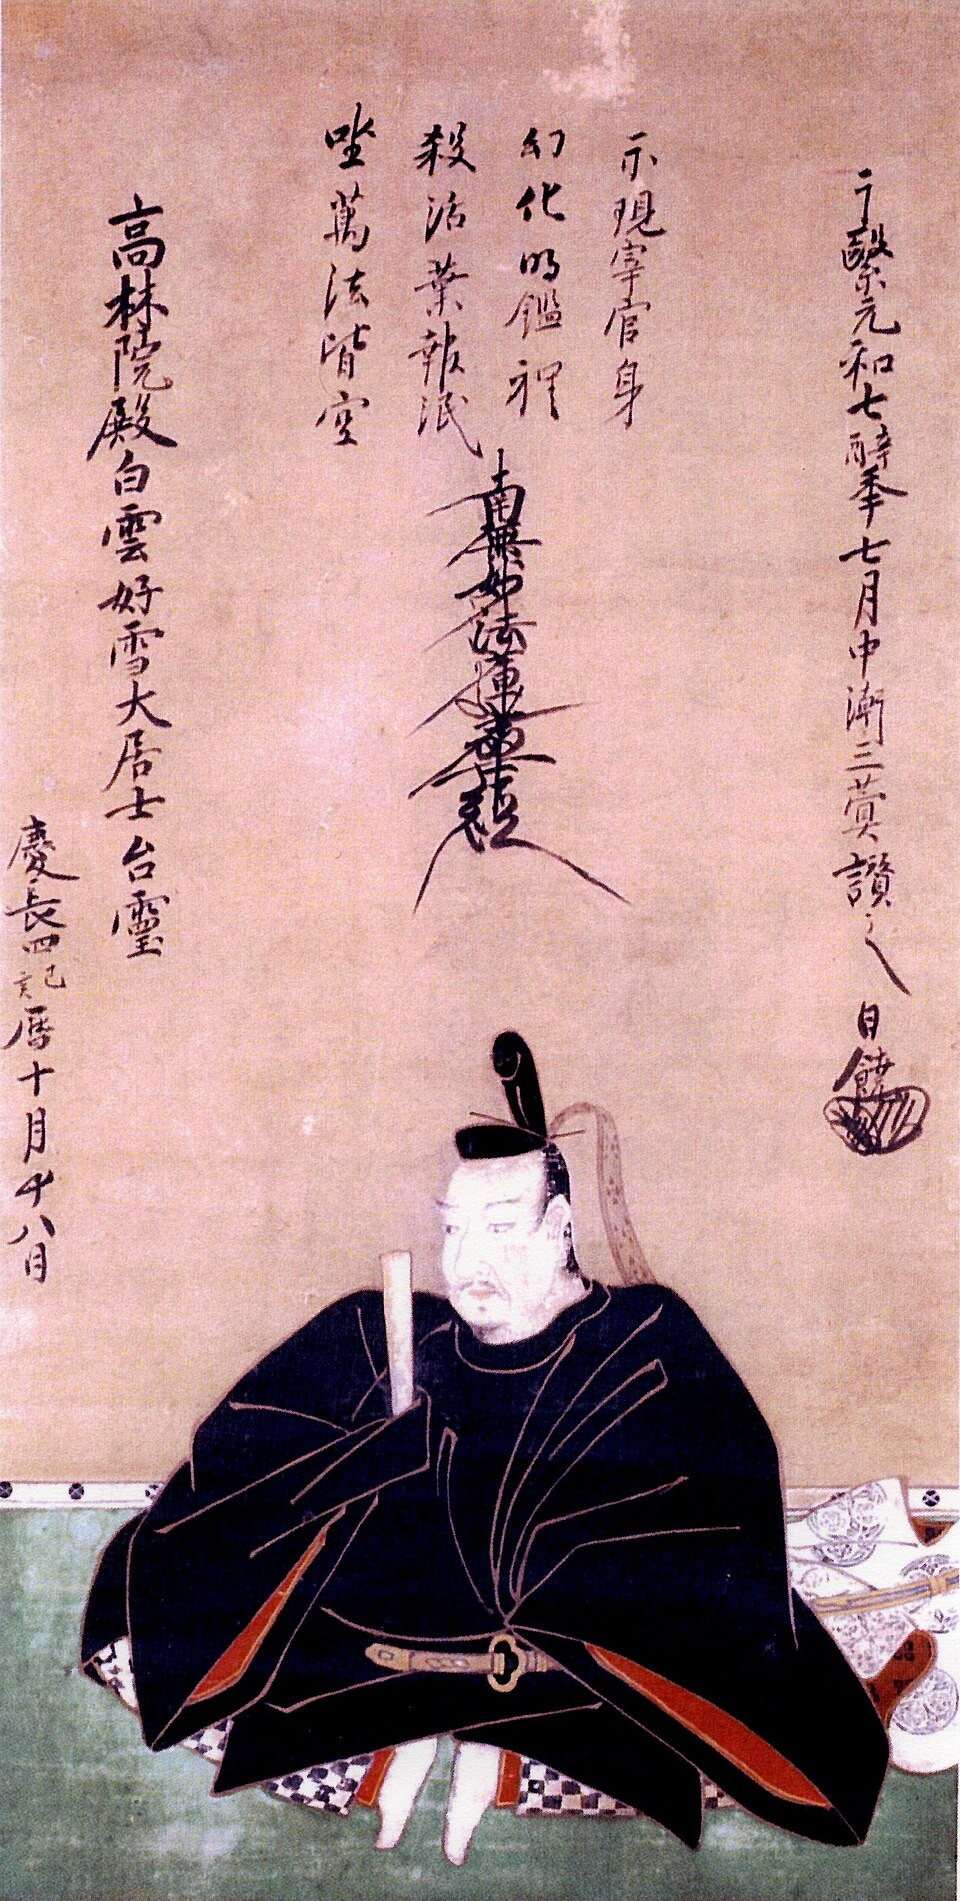 慶長四己亥暦十月十八日
高林院殿白雲好雪大居士台霊
坐萬法皆空
殺活業報泯
幻化明鑑裡
示現宰官身
南無妙法蓮華経
于繄元和七辛酉季七月中澣三蓂讃之 日饒